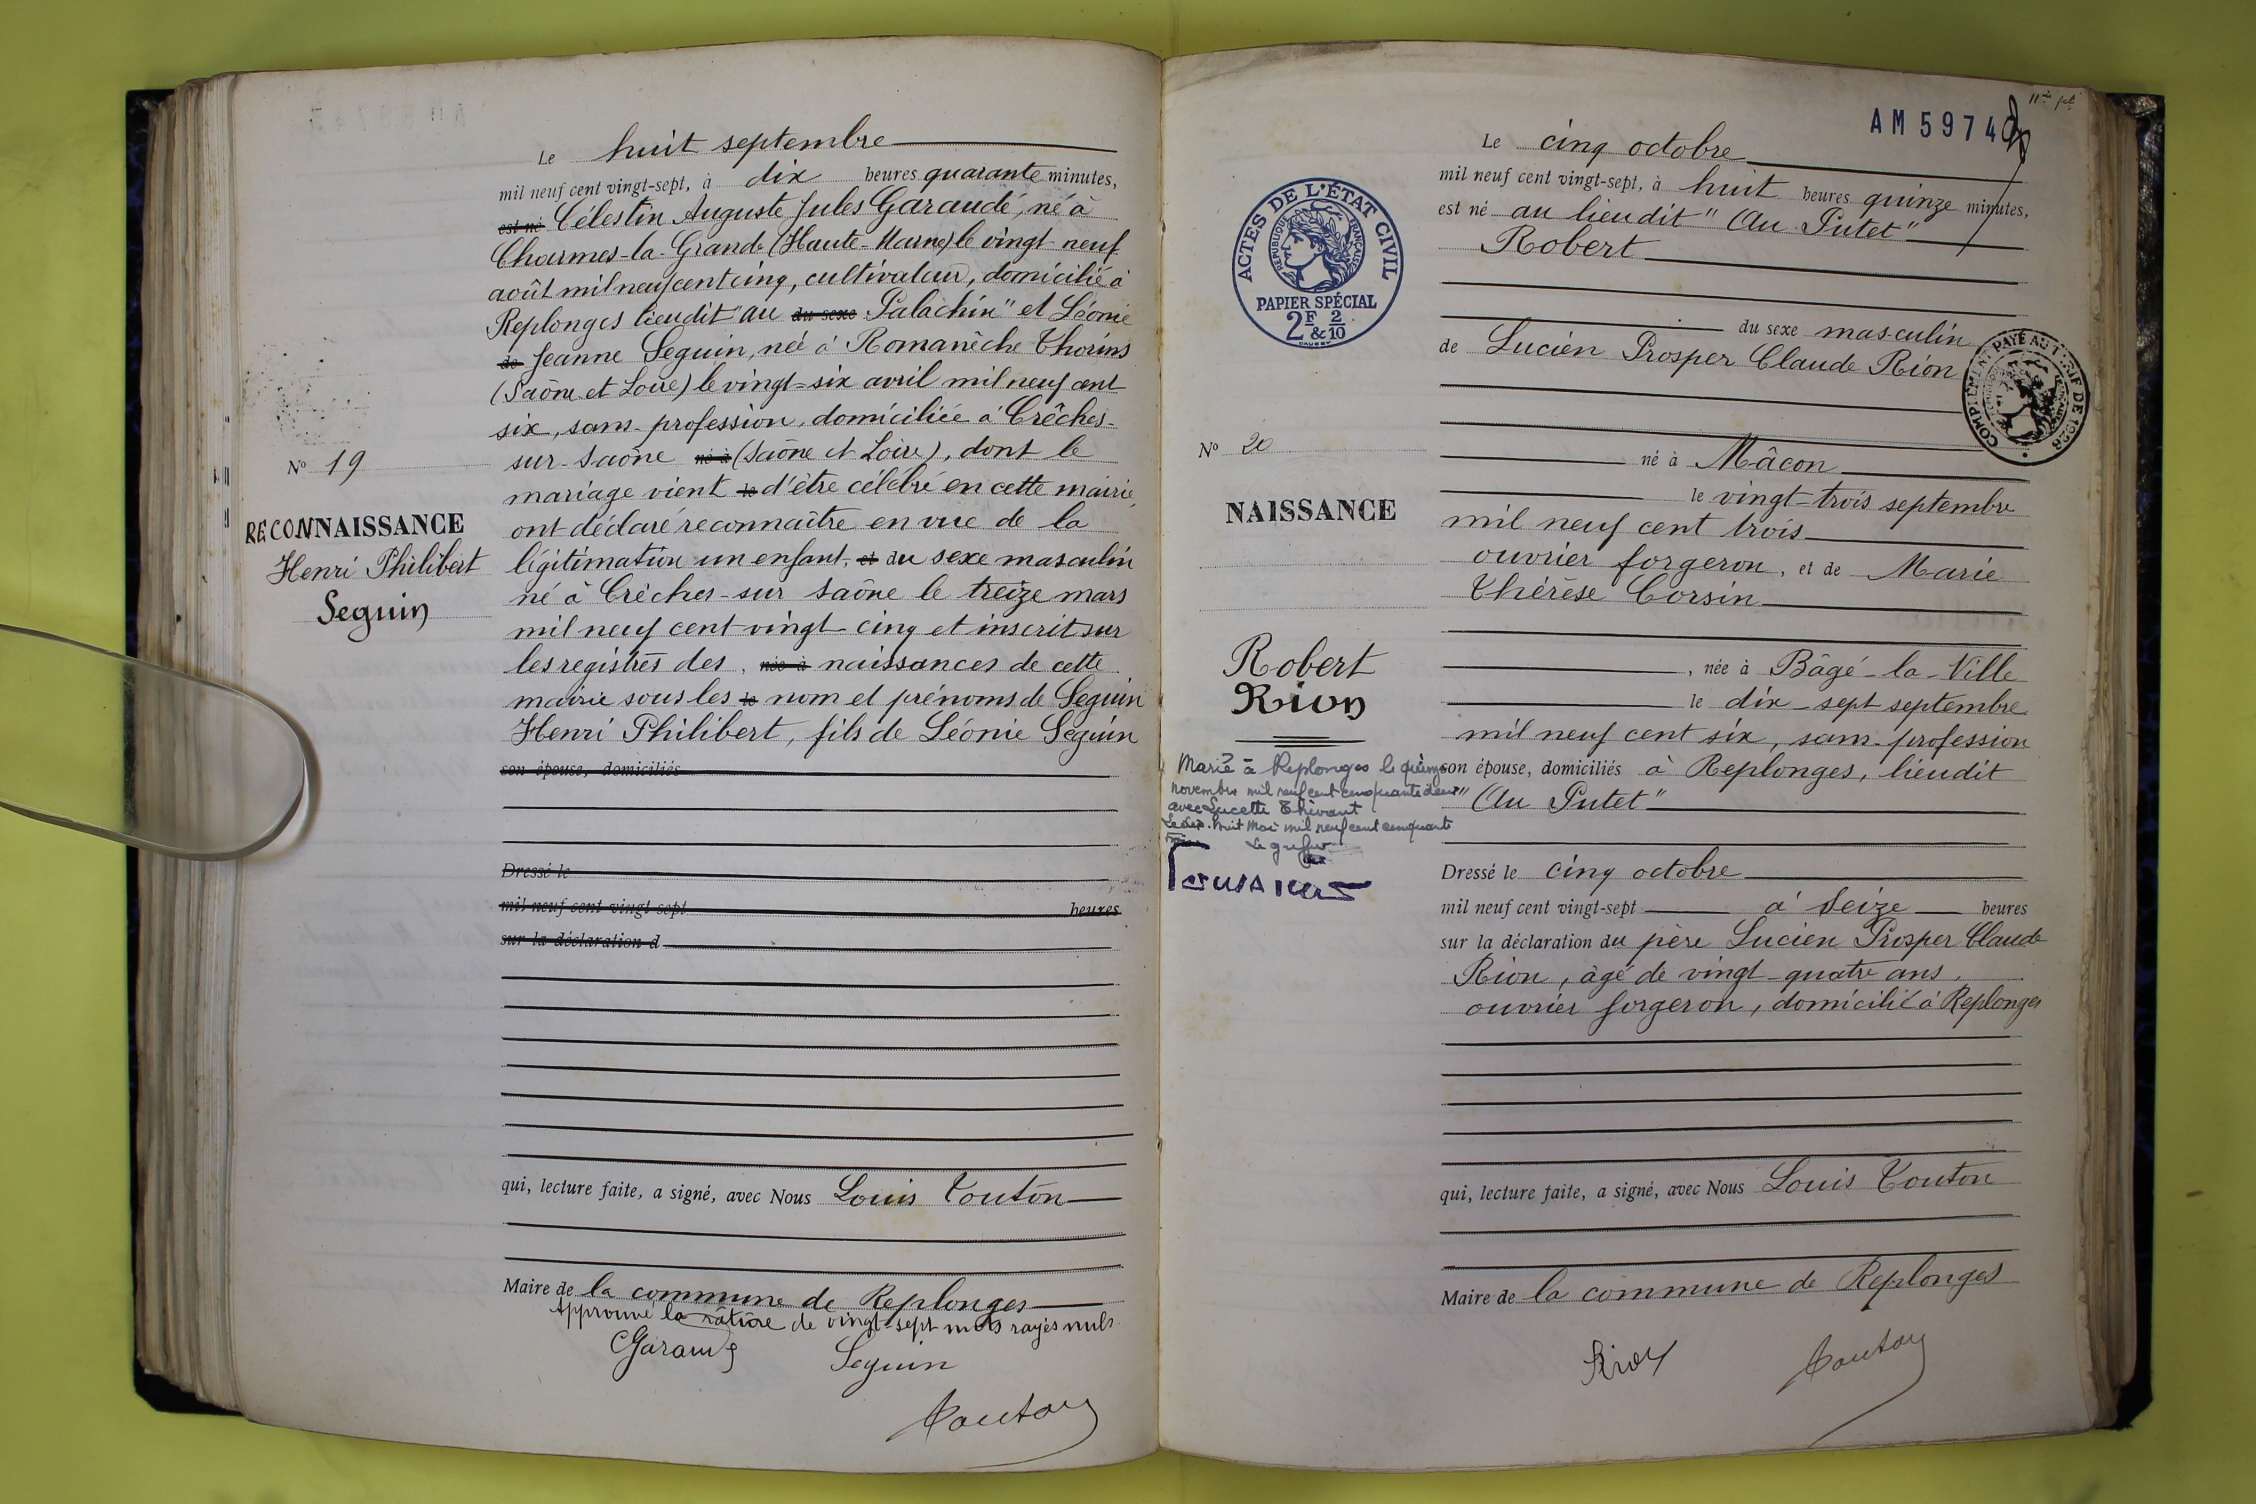 Le huit septembre
mil neuf cent vingt-sept, à dix heures quarante minutes,
est né Célestin Auguste Jules Garaudé, né à
Charmes-la-Grande (Haute-Marne) le vingt-neuf
août mil neuf cent cinq, cultivateur, domicilié à
Replonges lieudit "au du sexe Palachin" et Léonie
de Jeanne Seguin, née à Romanèche Thorins
(Saône et Loire) le vingt-six avril mil neuf cent
six, sans profession, domiciliée à Crêches-
sur-Saône né à (Saône et Loire), dont le
mariage vient le d'être célébré en cette mairie,
ont déclaré reconnaître en vue de la
légitimation un enfant, et du sexe masculin
né à Crêches-sur Saône le treize mars
mil neuf cent vingt cinq et inscrit sur
les registres des, née à naissances de cette
mairie sous les le nom et prénoms de Seguin
Henri Philibert, fils de Léonie Seguin
son épouse, domiciliés
Dressé le
mil neuf cent vingt-sept heures
sur la déclaration d
qui, lecture faite, a signé, avec Nous Louis Touton
Maire de la commune de Replonges
Approuvé la rature de vingt-sept mots rayés nuls
Garaudé Seguin
Touton
N° 19
RECONNAISSANCE
Henri Philibert
Seguin
AM 5974
Le cinq octobre
mil neuf cent vingt-sept, à huit heures quinze minutes,
est né au lieudit "Au Putet"
Robert
du sexe masculin
de Lucien Prosper Claude Rion
né à Mâcon
le vingt-trois septembre
mil neuf cent trois
ouvrier forgeron, et de Marie
Thérèse Corsin
, née à Bâgé-la-Ville
le dix-sept septembre
mil neuf cent six, sans profession
son épouse, domiciliés à Replonges, lieudit
"Au Putet"
Dressé le cinq octobre
mil neuf cent vingt-sept à seize heures
sur la déclaration du père Lucien Prosper Claude
Rion, âgé de vingt-quatre ans,
ouvrier forgeron, domicilié à Replonges
qui, lecture faite, a signé, avec Nous Louis Touton
Maire de la commune de Replonges
Rion Touton
ACTES DE L'ÉTAT CIVIL
RÉPUBLIQUE FRANÇAISE
PAPIER SPÉCIAL
2F & 2/10
COMPLÉMENT PAYÉ AU TARIF DE 1926
N° 20
NAISSANCE
Robert
Rion
Marié à Replonges le quinze
novembre mil neuf cent cinquante deux
avec Lucette Thévant
Le dix-huit Mai mil neuf cent cinquante
Le greffier